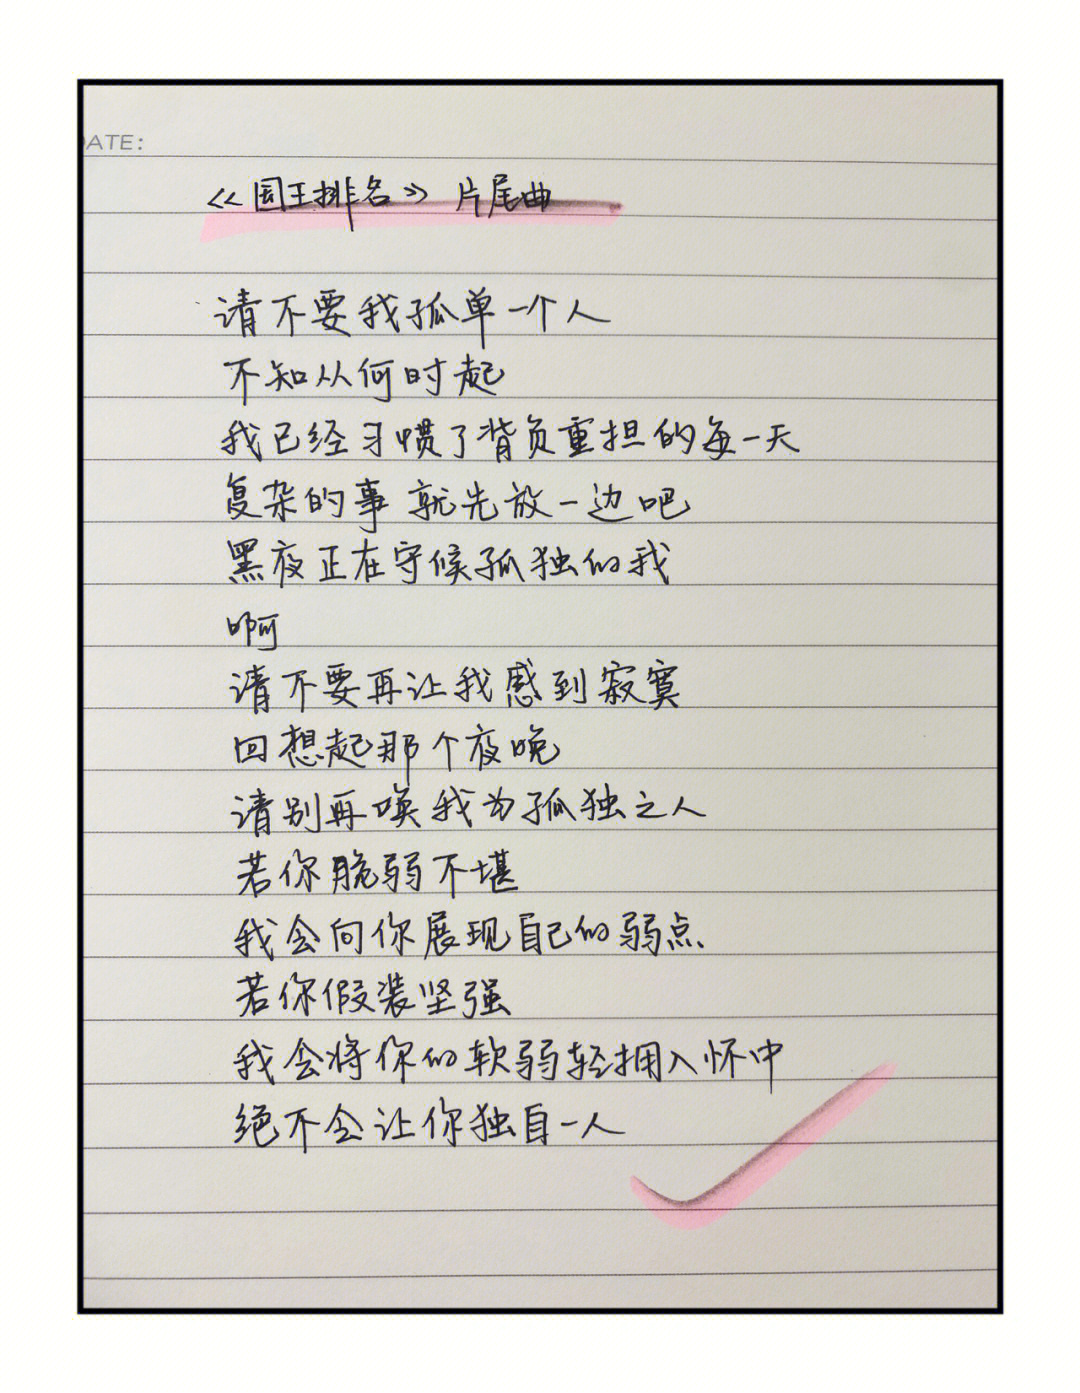 DATE:
《国王排名》片尾曲
请不要我孤单一个人
不知从何时起
我已经习惯了背负重担的每一天
复杂的事 就先放一边吧
黑夜正在守候孤独的我
啊
请不要再让我感到寂寞
回想起那个夜晚
请别再唤我为孤独之人
若你脆弱不堪
我会向你展现自己的弱点
若你假装坚强
我会将你的软弱轻拥入怀中
绝不会让你独自一人